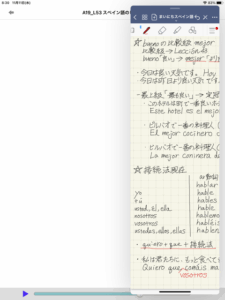 A19_L53 スペイン語の
まいにちスペイン語
☆buenoの比較級 mejor
比較級→Lección
bueno"良い"→mejor
・今日は良い天気です。Hoy
今日は昨日より良い天気です
・最上級「最も良い」→定冠
・このホテルは町で一番良いホ
Este hotel es el mejor
・ビルバオで一番の料理人(
El mejor cocinero
・ビルバオで一番の料理人(
La mejor cocinera de
☆接続法現在
ar動詞
hablar
yo hable
tú hables
usted, él, ella hable
nosotros hablemos
vosotros habléis
ustedes, ellos, ellas hablen
・quiero+que+接続法
・私は君たちに、もっと食べて
Quiero que comáis más
vosotros